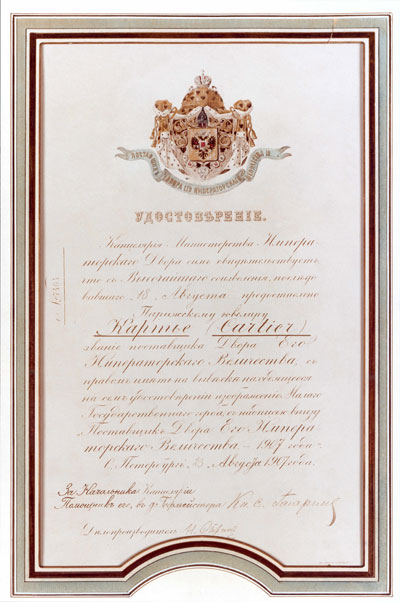 ПОСТАВЩИКЪ ДВОРА ЕГО ИМПЕРАТОРСКАГО ВЕЛИЧЕСТВА
УДОСТОВѢРЕНІЕ.
Канцелярія Министерства Импера-
торскаго Двора симъ свидѣтельствуетъ,
что съ Высочайшаго соизволенія, послѣдо-
вавшаго 18 Августа предоставлено
Парижскому ювелиру
Картье (Cartier)
званіе поставщика Двора Его
Императорскаго Величества, съ
правомъ имѣть на вывѣскѣ находящееся
на семъ удостовѣреніи изображеніе Малаго
Государственнаго герба, съ надписью внизу
"Поставщикъ Двора Его Импера-
торскаго Величества – 1907 года."
С. Петербургъ, Августа 1907 года.
За Начальника Канцеляріи
Помощникъ его, въ д. Церемоніймейстера Кн. Гагаринъ
Дѣлопроизводитель